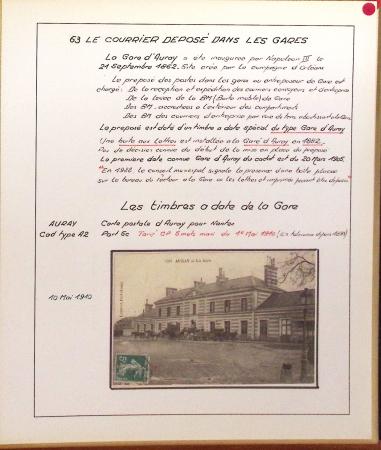 63 LE COURRIER DEPOSE DANS LES GARES
La Gare d'Auray a été inaugurée par Napoléon III le
21 Septembre 1862. Site créé par la compagnie d'Orléans
Le préposé des postes dans les gares ou entreposeur de Gare est
chargé: De la réception et expédition des courriers
De la levée de la BM (Boite mobile) de Gare
Des BM. accrochées a l'extérieur des
Des BM des courriers d'entreprise par
Le préposé est doté d'un timbre a date spécial du type Gare d'Auray
Une boite aux lettres est installée a la Gare d'Auray en 1882.
Pas de décision connue du début de la mise en place du préposé
La première date connue Gare d'Auray du cachet est du 20 Mars 1905.
"En 1938 le conseil municipal signale la présence d'une boite placée
sur le bureau du facteur a la Gare ou les lettres et imprimés peuvent être déposés"
Les timbres a date de la Gare
AURAY Carte postale d'Auray pour Nantes
Cad type A2 Port 5c Tarif CP 5 mots maxi du 1er Mai 1910
10 Mai 1910
AURAY - La Gare